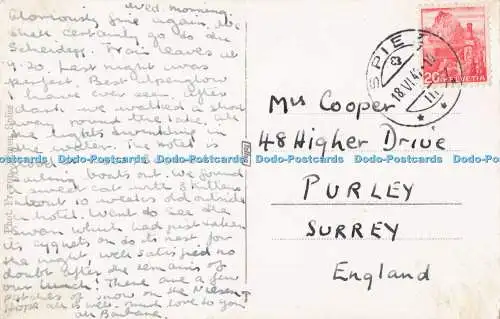 Wed. morning.
Gloriously fine again. We
shall certainly go to the
Scheidegg. Train leaves at
9.30. Last night was
perfect. Best Alpenglow
I have ever seen. After
dark we walked a short
way round the lake. All
the lights twinkling in
the water. The hotel is
sailing boats out. We found
a sweet cat with 3 kittens
about 10 weeks old outside
an hotel. Went to see the
swan which had just taken
its cygnets on to its nest for
the night, well satisfied no
doubt after the remains of
our lunch! There are a few
patches of snow on the Niesen
Hope all is well. Much love to you
all Barbara.
Phot.
SPIEZ
18.VI.4
20 HELVETIA
Mrs Cooper
48 Higher Drive
PURLEY
SURREY
England
Dodo-Postcards Dodo-Postcards Dodo-Postcards